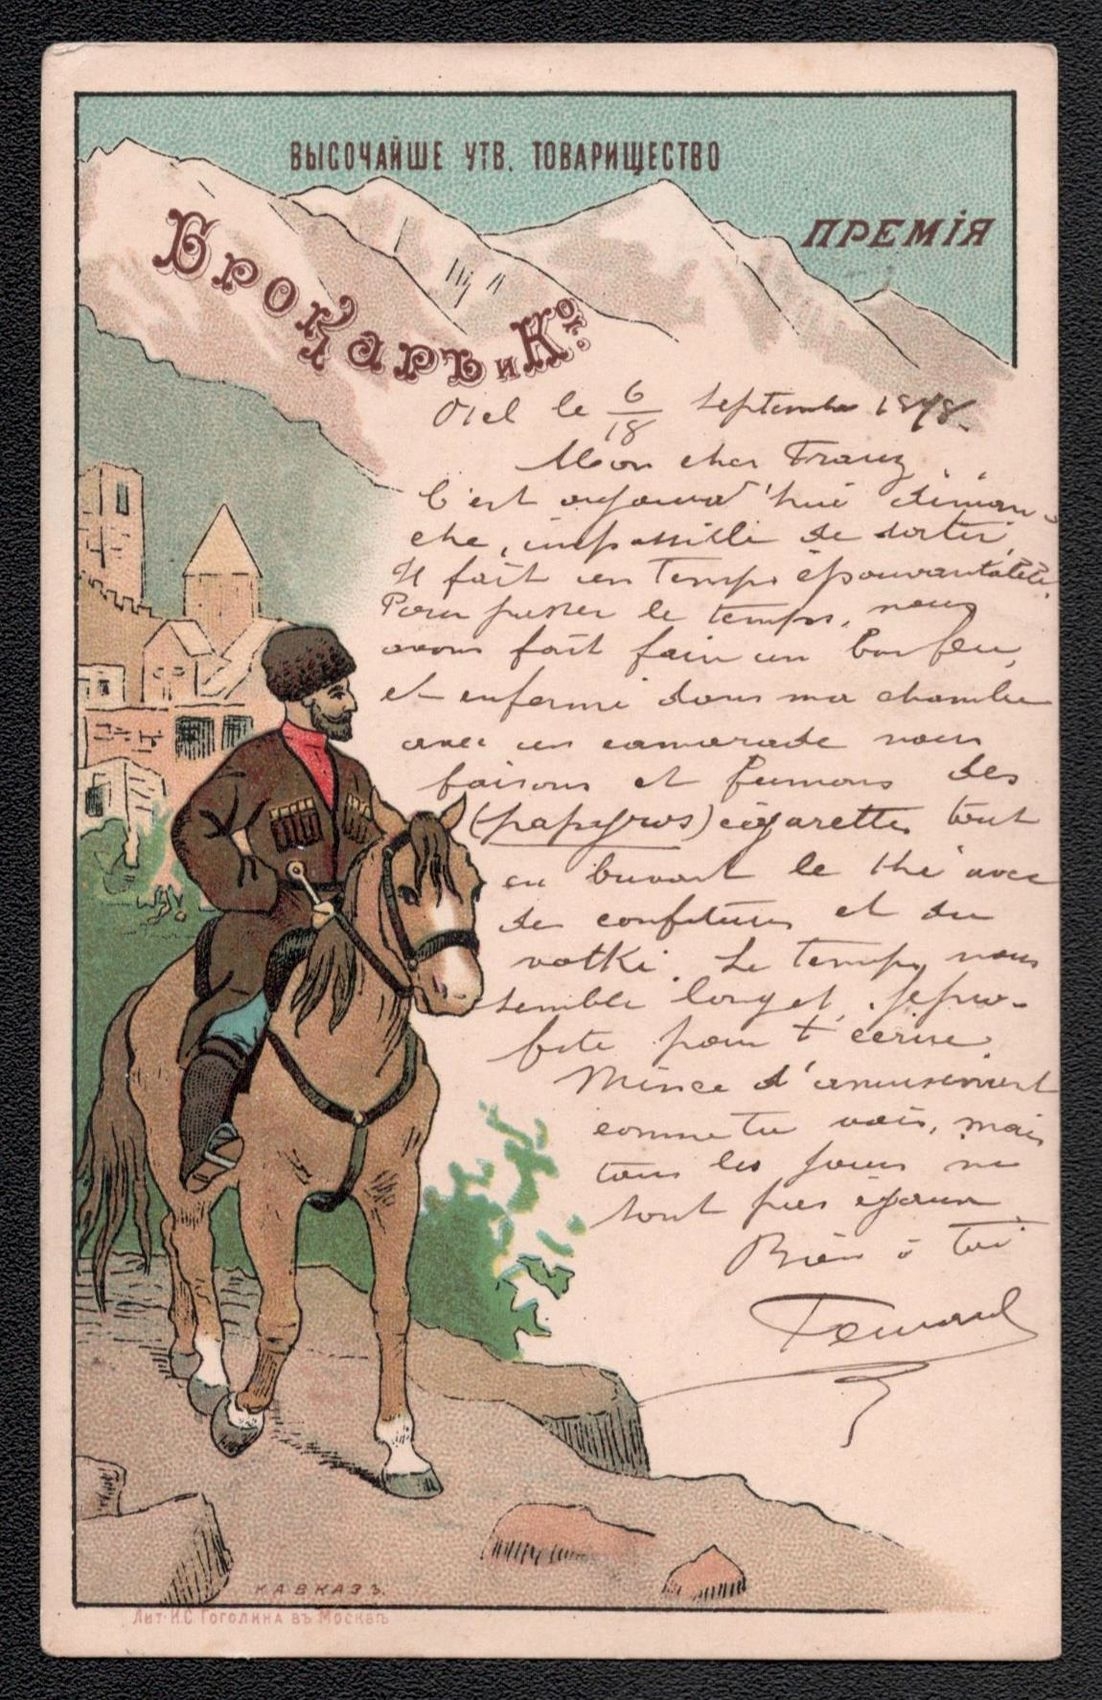 ВЫСОЧАЙШЕ УТВ. ТОВАРИЩЕСТВО
ПРЕМІЯ
БРОКАРЪ и Ко.
Orel le 6/18 Septembre 1898.
Mon cher Franz,
C'est aujourd'hui diman-
che, impossible de sortir,
Il fait un temps épouvantable.
Pour passer le temps, nous
avons fait faire un bon feu,
et enfermé dans ma chambre
avec un camarade nous
faisons et fumons des
(papyros) cigarettes tout
en buvant le thé avec
des confitures et du
votki. Le temps nous
semble long et je pro-
fite pour t'écrire.
Mince d'amusement
comme tu vois, mais
tous les jours ne
sont pas égaux
Bien à toi
КАВКАЗЪ.
Лит. И.С. Гоголина въ Москвѣ